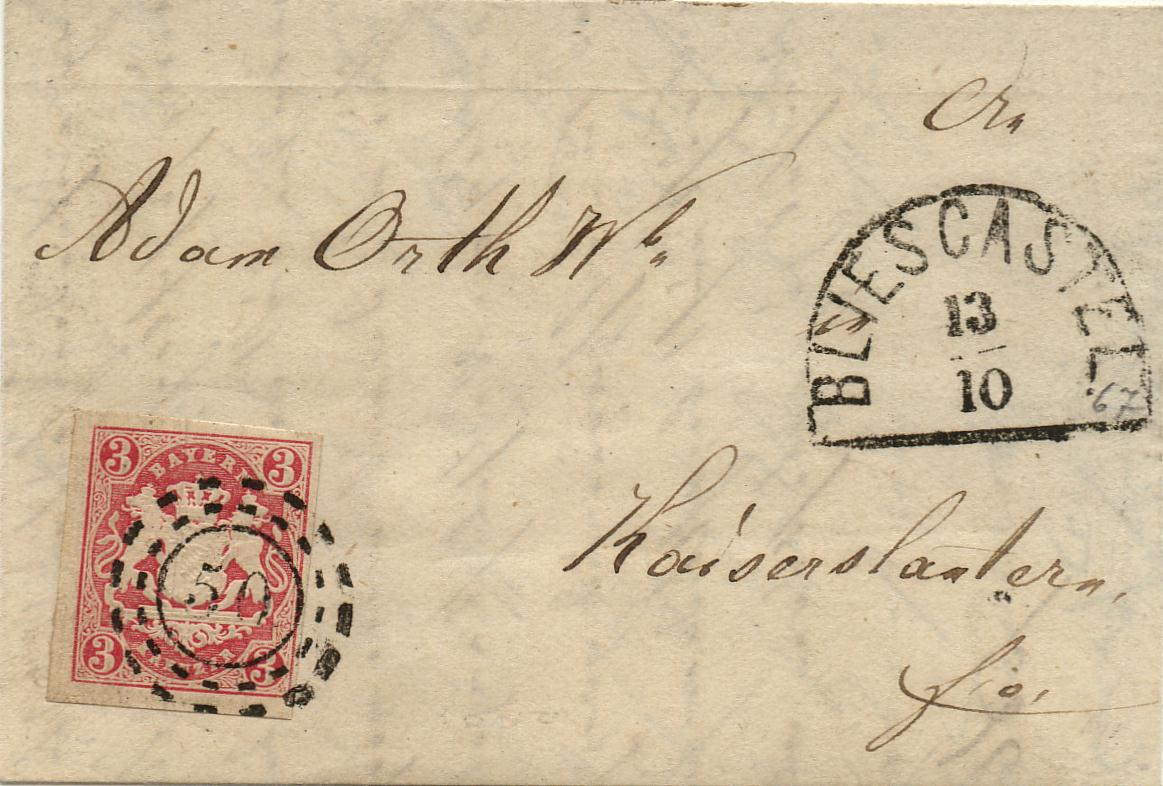 Adam Orth Wb
BLIESCASTEL.
13
10
67
Kaiserslautern.
fro.
3 3
BAYERN
50
KREUZER
3 3